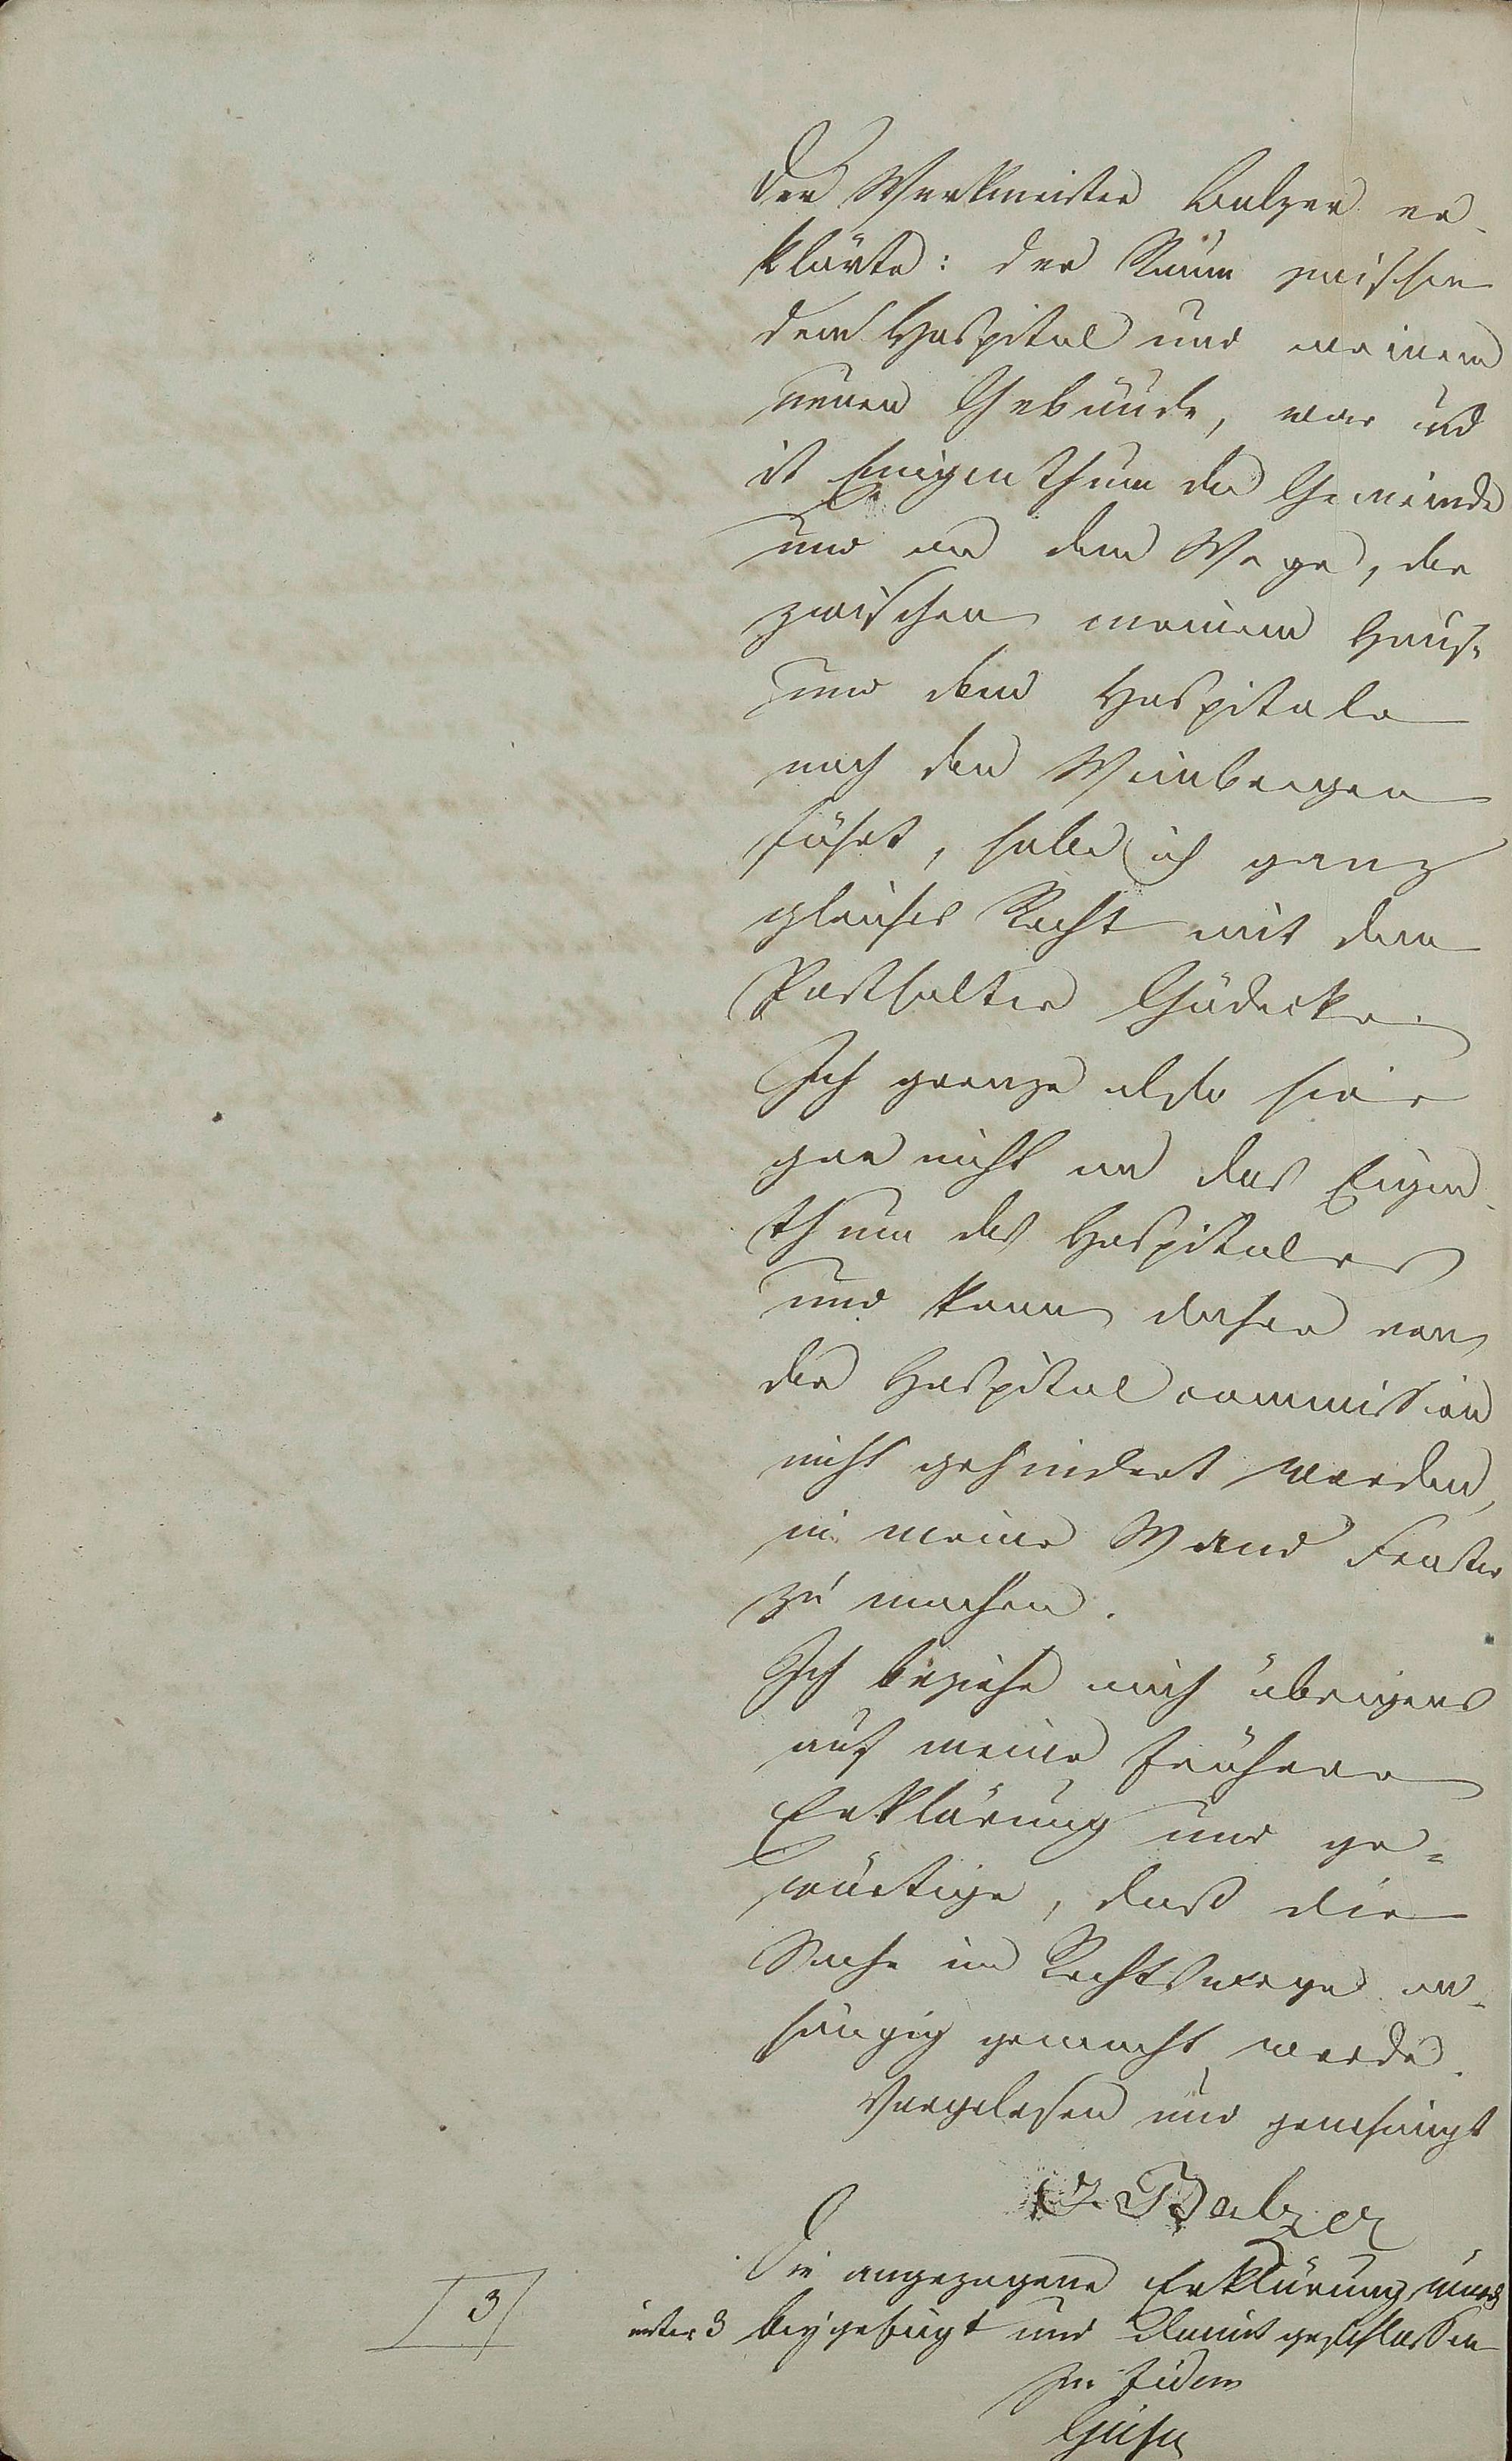 Der Werkmeister Balzer er-
klärte: der Raum zwischen
dem Hospital und meinem
neuen Gebäude, war und
ist Eigenthum der Gemeinde
und an dem Wege, der
zwischen meinem Hause
und dem Hospitale
nach den Weinbergen
führt, habe ich ganz
gleiches Recht mit dem
Posthalter Gödecke.
Ich grenze also hier
gar nicht an das Eigen-
thum des Hospitales
und kann daher von
der Hospitalcommission
nicht gehindert werden,
in meine Wand Fenster
zu machen.
Ich beziehe mich übrigens
auf meine frühere
Erklärung und ge=
wärtige, daß die
Sache im Rechtswege an-
hängig gemacht werde.
Vorgelesen und genehmigt
Balzer
Die angezogene Erklärung wurde
unter 3 beygefügt und damit geschlossen
3
In fidem